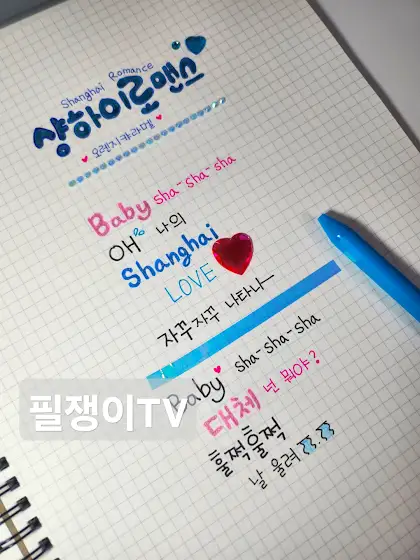 Shanghai Romance
샹하이로맨스
오렌지캬라멜
Baby sha-sha-sha
OH 나의
Shanghai
LOVE
자꾸자꾸 나타나—
Baby sha-sha-sha
대체 넌 뭐야?
훌쩍훌쩍
날 울려
필쟁이TV